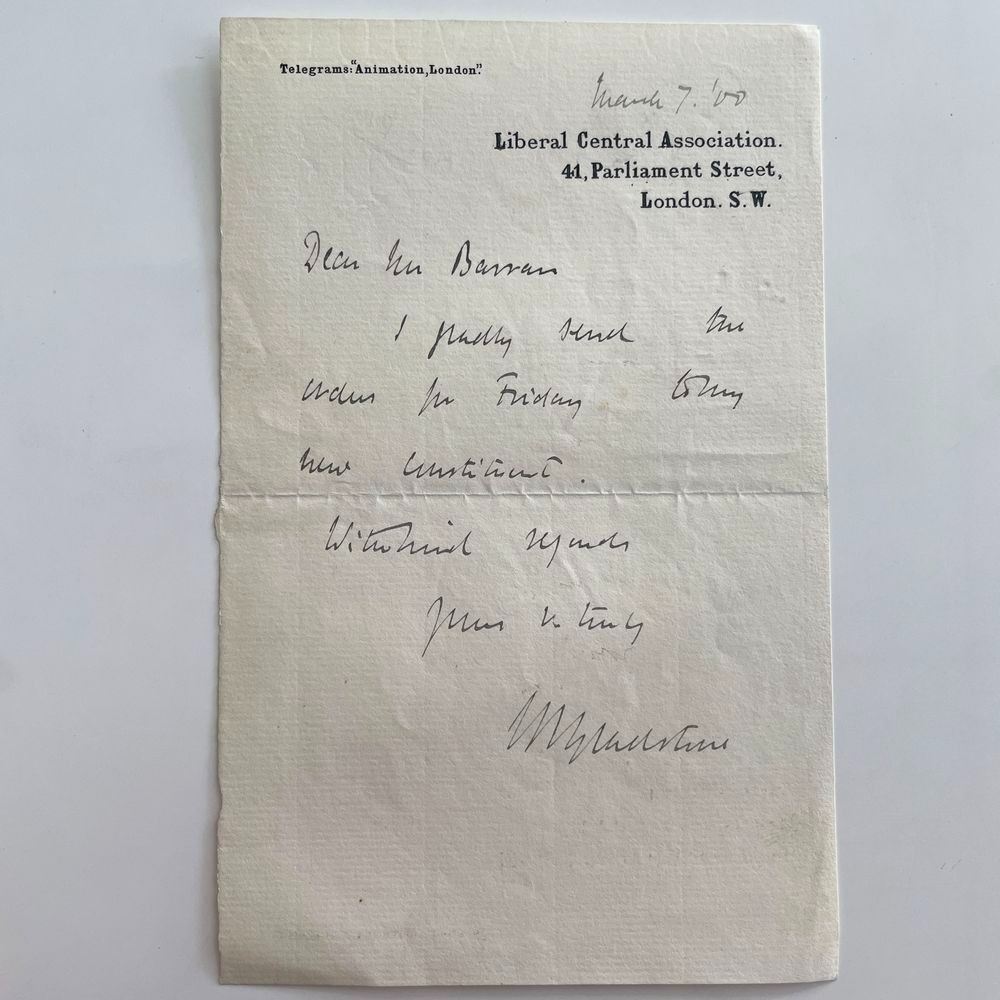 Telegrams: "Animation, London".
March 7. '00
Liberal Central Association.
41, Parliament Street,
London. S.W.
Dear Mr Barran
I gladly send the
order for Friday to my
new constituent.
With kind regards
Yours v. truly
Gladstone